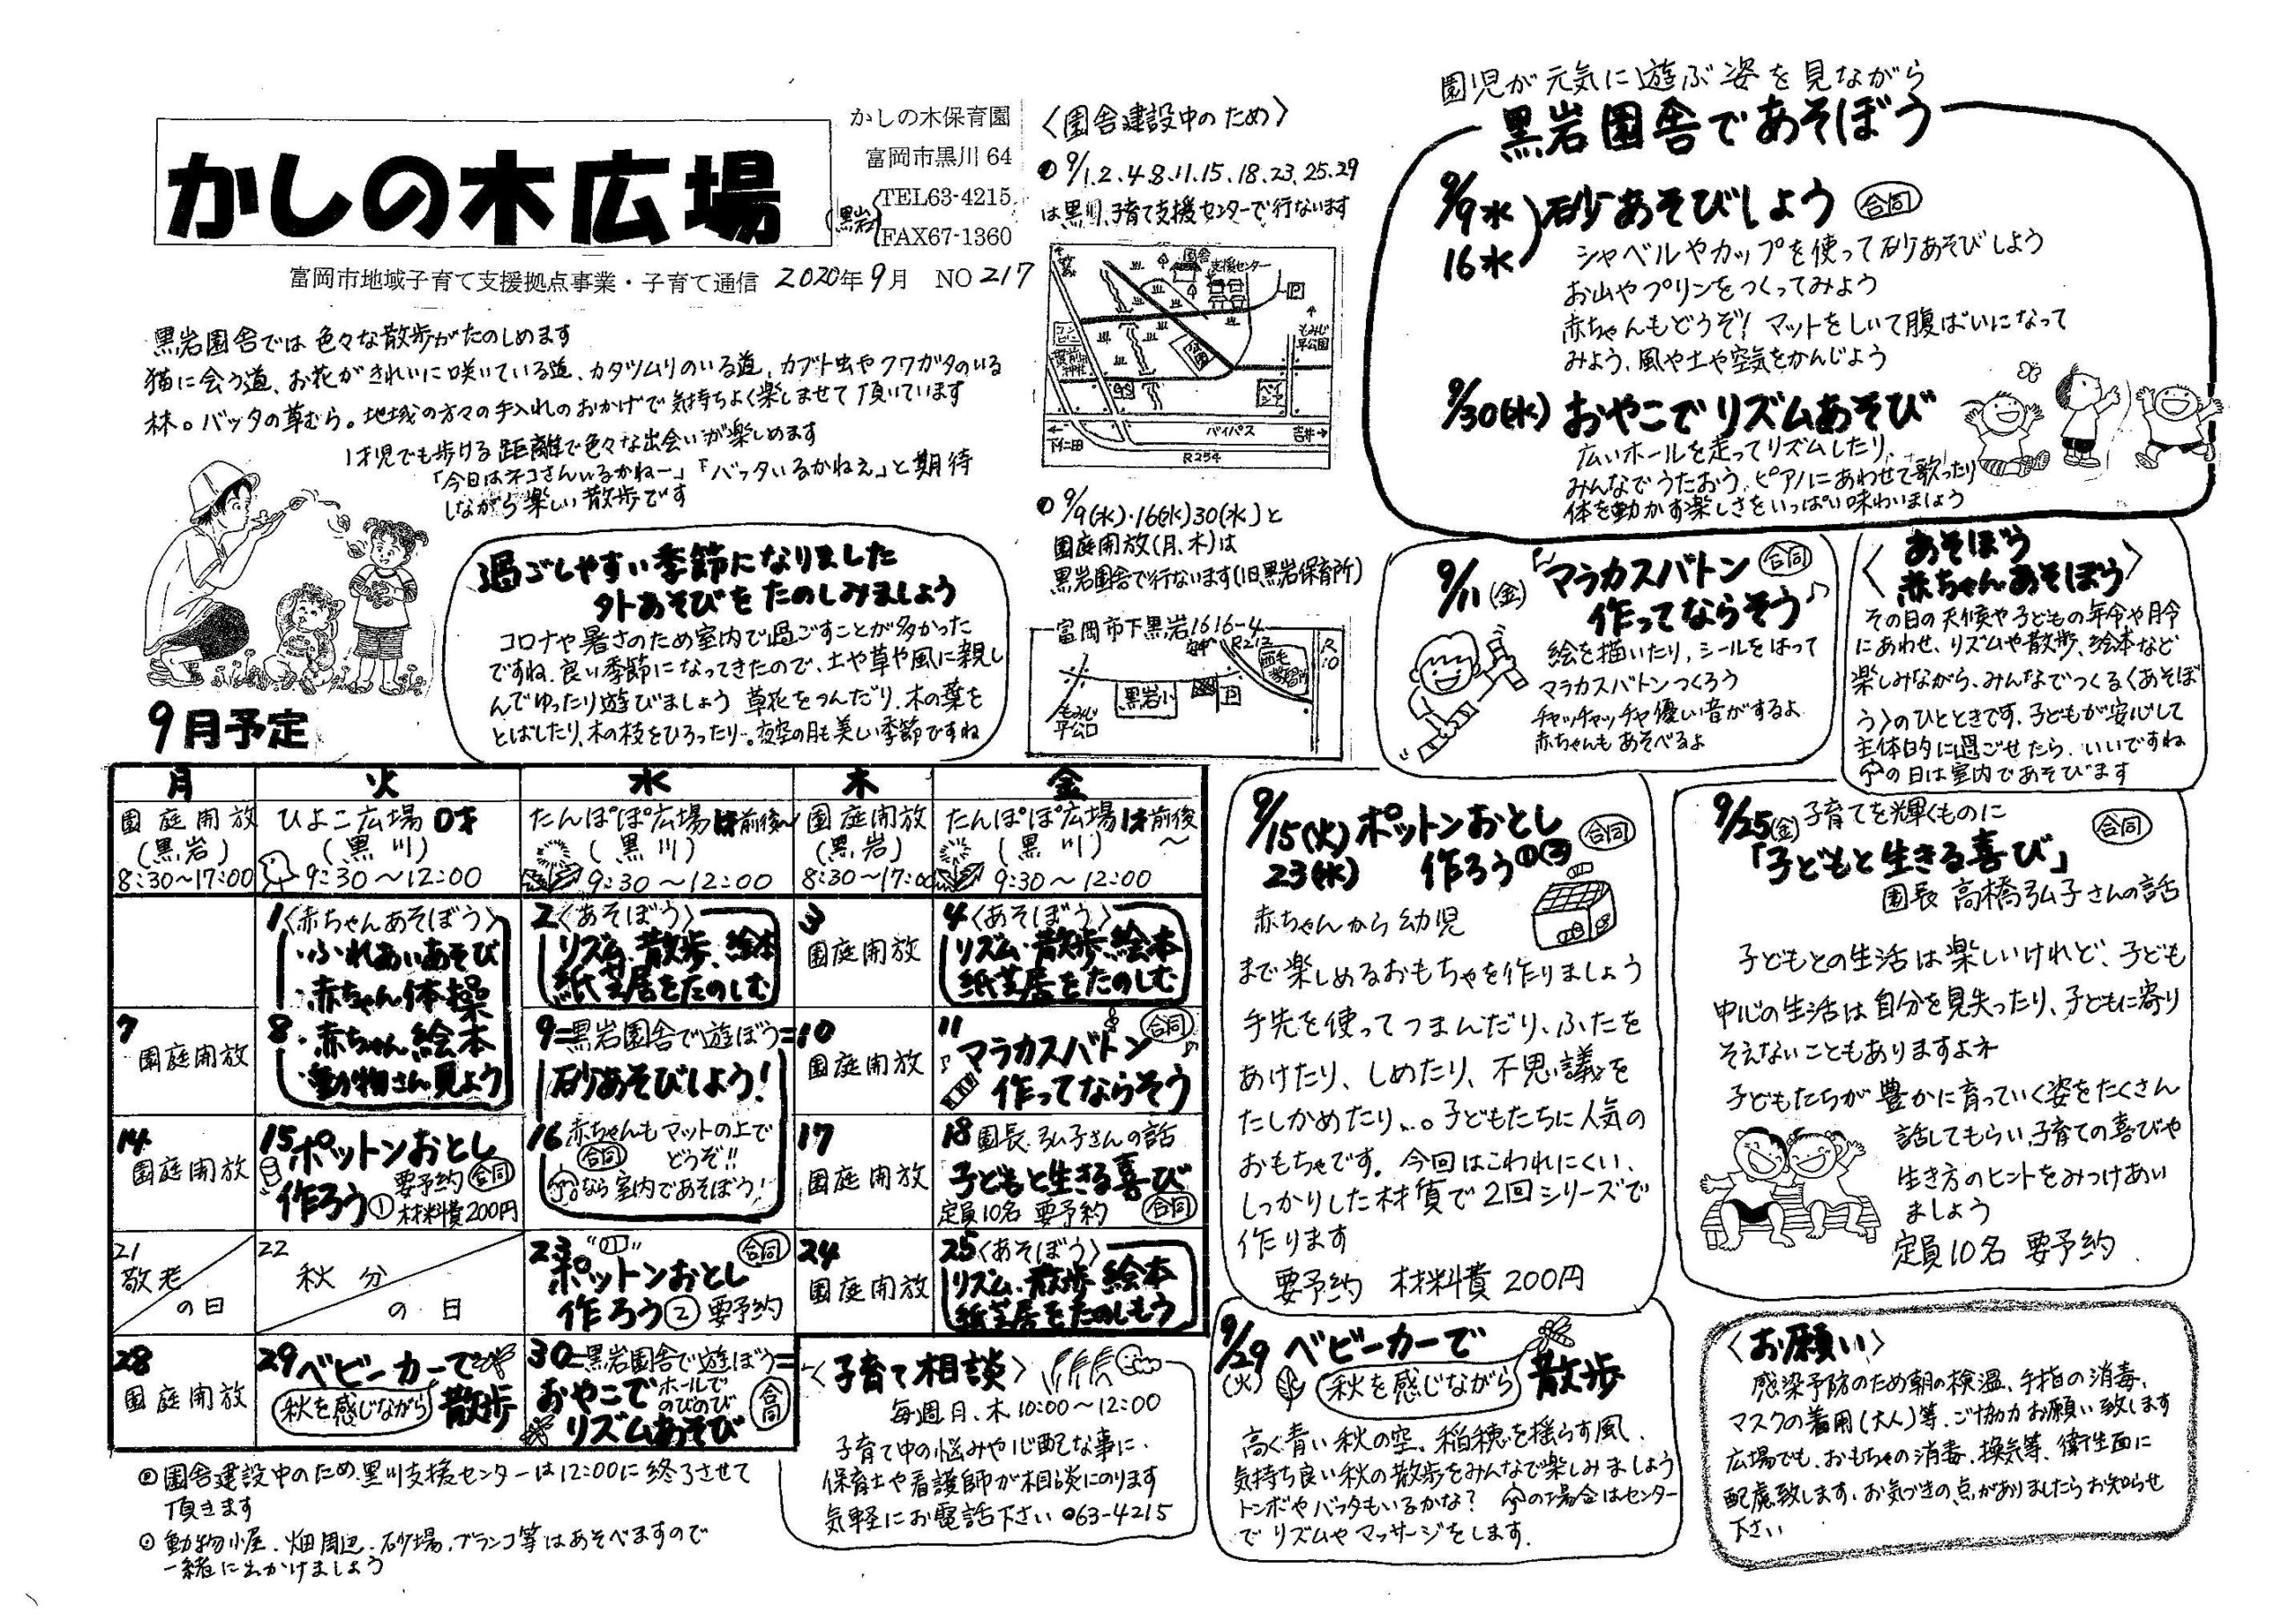 かしの木広場
かしの木保育園
富岡市黒川 64
(黒岩)
TEL63-4215
FAX67-1360
富岡市地域子育て支援拠点事業・子育て通信 2020年9月 NO 217
黒岩園舎では色々な散歩がたのしめます
猫に会う道、お花がきれいに咲いている道、カタツムリのいる道、カブト虫やクワガタのいる
林。バッタの草むら。地域の方々の手入れのおかげで気持ちよく楽しませて頂いています
1才児でも歩ける距離で色々な出会いが楽しめます
「今日はネコさんいるかねー」「バッタいるかねえ」と期待
しながら楽しい散歩です
過ごしやすい季節になりました
外あそびをたのしみましょう
コロナや暑さのため室内で過ごすことが多かった
ですね。良い季節になってきたので、土や草や風に親し
んでゆったり遊びましょう 草花をつんだり、木の葉を
とばしたり、木の枝をひろったり…。夜空の月も美しい季節ですね
〈園舎建設中のため〉
9/1.2.4.8.11.15.18.23.25.29
は黒川子育て支援センターで行ないます
園舎
支援センター
もみじ平公園
バイパス
下仁田
吉井
R254
9/9(水)・16(水)30(水)と
園庭開放(月、木)は
黒岩園舎で行ないます(旧黒岩保育所)
富岡市下黒岩1616-4
R213
R10
黒岩小
もみじ平公口
園児が元気に遊ぶ姿を見ながら
黒岩園舎であそぼう
9/9水
16水
砂あそびしよう 合同
シャベルやカップを使って砂あそびしよう
お山やプリンをつくってみよう
赤ちゃんもどうぞ! マットをしいて腹ばいになって
みよう、風や土や空気をかんじよう
9/30(水) おやこでリズムあそび
広いホールを走ってリズムしたり、
みんなでうたおう、ピアノにあわせて歌ったり
体を動かす楽しさをいっぱい味わいましょう
9/11(金) マラカスバトン 合同
作ってならそう♪
絵を描いたり、シールをはって
マラカスバトンつくろう
チャッチャッチャ優しい音がするよ
赤ちゃんもあそべるよ
〈あそぼう
赤ちゃんあそぼう〉
その日の天候や子どもの年令や月令
にあわせ、リズムや散歩、絵本など
楽しみながら、みんなでつくる〈あそぼ
う〉のひとときです。子どもが安心して
主体的に過ごせたら、いいですね
の日は室内であそびます
9月予定
月 火 水 木 金
園庭開放
(黒岩)
8:30~17:00
ひよこ広場 0才
(黒川)
9:30~12:00
たんぽぽ広場 1才前後~
(黒川)
9:30~12:00
園庭開放
(黒岩)
8:30~17:00
たんぽぽ広場 1才前後~
(黒川)
9:30~12:00
1〈赤ちゃんあそぼう〉
・ふれあいあそび
・赤ちゃん体操
2〈あそぼう〉
リズム、散歩、絵本
紙芝居をたのしむ
3
園庭開放
4〈あそぼう〉
リズム・散歩、絵本
紙芝居をたのしむ
7
園庭開放
8
・赤ちゃん絵本
・動物さん見よう
9=黒岩園舎で遊ぼう=
砂あそびしよう!
10
園庭開放
11 合同
♪マラカスバトン♪
作ってならそう
14
園庭開放
15 ポットンおとし
作ろう① 要予約 合同
材料費200円
16 赤ちゃんもマットの上で
合同 どうぞ!!
なら室内であそぼう!
17
園庭開放
18 園長 弘子さんの話
子どもと生きる喜び
定員10名 要予約 合同
21
敬老の日
22
秋分の日
23 合同
ポットンおとし
作ろう② 要予約
24
園庭開放
25〈あそぼう〉
リズム、散歩 絵本
紙芝居をたのしもう
28
園庭開放
29 ベビーカーで
秋を感じながら 散歩
30=黒岩園舎で遊ぼう=
おやこで ホールでのびのび 合同
リズムあそび
園舎建設中のため、黒川支援センターは12:00に終了させて
頂きます
動物小屋、畑周辺、砂場、ブランコ等はあそべますので
一緒に出かけましょう
〈子育て相談〉
毎週月、木 10:00~12:00
子育て中の悩みや心配な事に、
保育士や看護師が相談にのります
気軽にお電話下さい 63-4215
9/15(火) ポットンおとし 合同
23(水) 作ろう①②
赤ちゃんから幼児
まで楽しめるおもちゃを作りましょう
手先を使ってつまんだり、ふたを
あけたり、しめたり、不思議を
たしかめたり…。子どもたちに人気の
おもちゃです。今回はこわれにくい、
しっかりした材質で2回シリーズで
作ります
要予約 材料費 200円
9/25(金) 子育てを輝くものに 合同
「子どもと生きる喜び」
園長 高橋弘子さんの話
子どもとの生活は楽しいけれど、子ども
中心の生活は自分を見失ったり、子どもに寄り
そえないこともありますよネ
子どもたちが豊かに育っていく姿をたくさん
話してもらい、子育ての喜びや
生き方のヒントをみつけあい
ましょう
定員10名 要予約
9/29(火) ベビーカーで
秋を感じながら 散歩
高く青い秋の空、稲穂を揺らす風、
気持ち良い秋の散歩をみんなで楽しみましょう
トンボやバッタもいるかな? の場合はセンター
でリズムやマッサージをします。
〈お願い〉
感染予防のため朝の検温、手指の消毒、
マスクの着用(大人)等、ご協力お願い致します
広場でも、おもちゃの消毒、換気等、衛生面に
配慮致します、お気づきの点がありましたらお知らせ
下さい